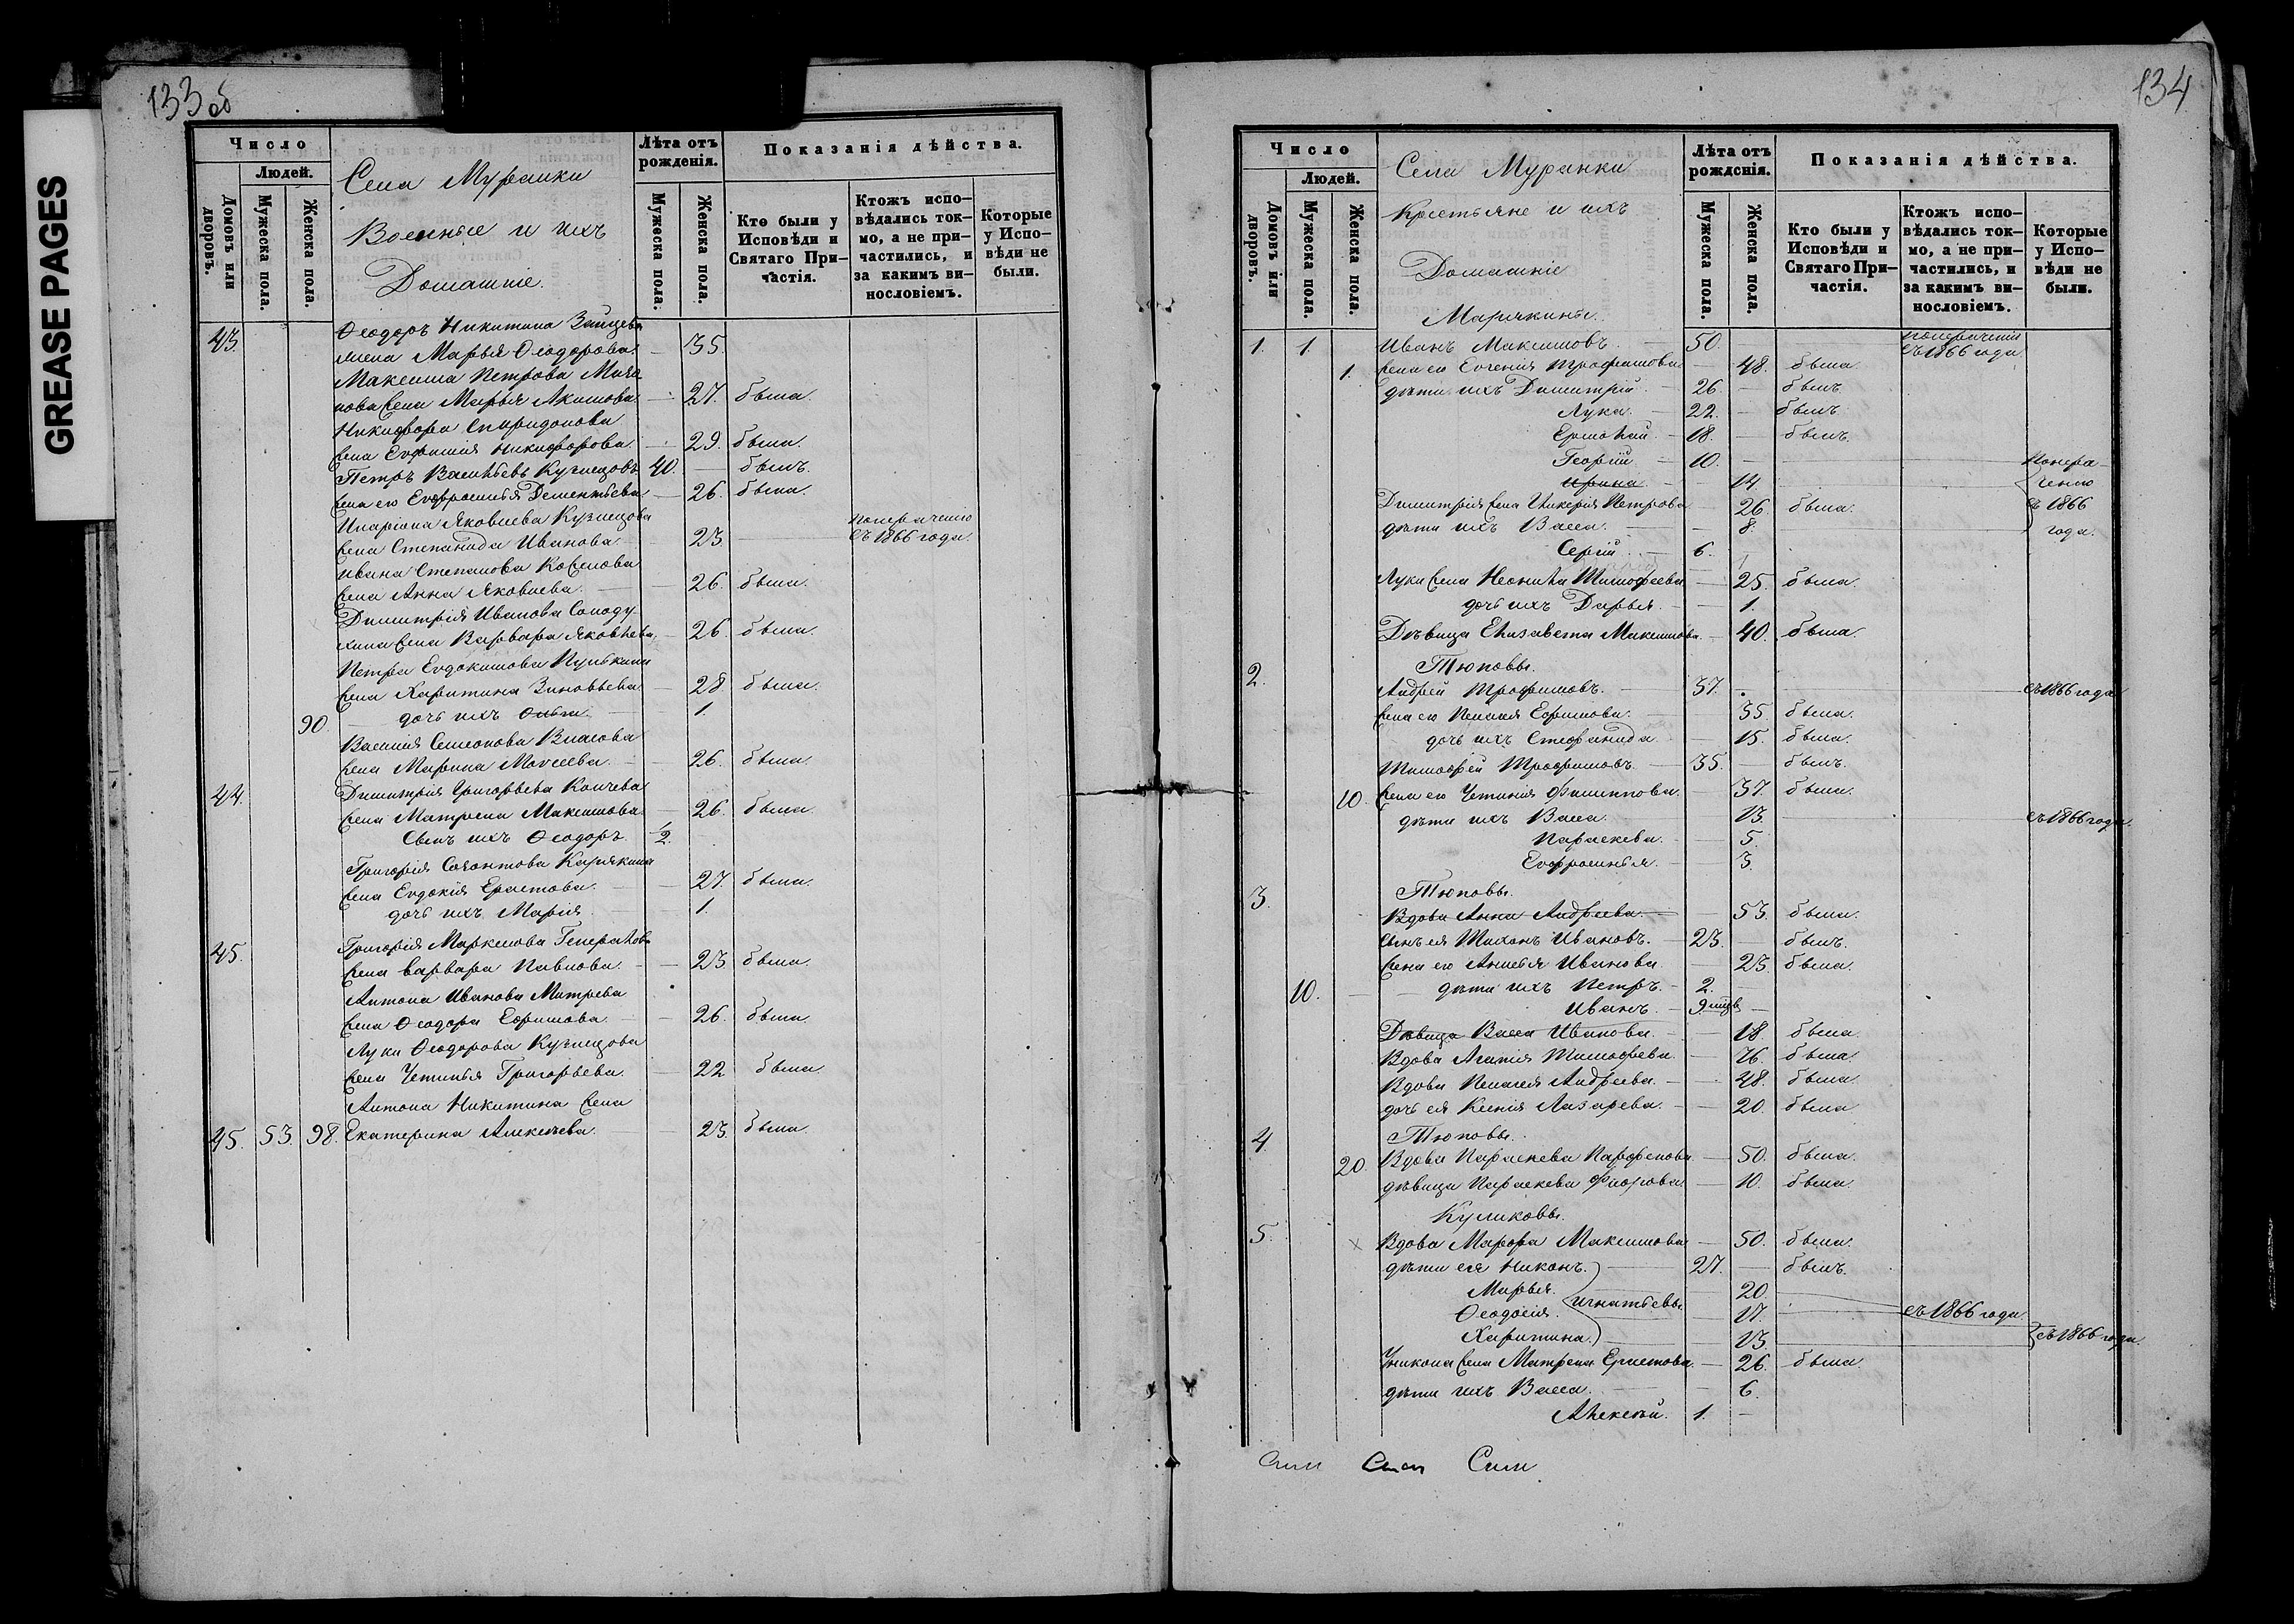 GREASE PAGES
133 об
Число
Людей.
Домовъ или дворовъ.
Мужеска пола.
Женска пола.
Села Муранки
Военные и ихъ
Домашніе.
Лѣта отъ рожденія.
Мужеска пола.
Женска пола.
Показанія дѣйства.
Кто были у Исповѣди и Святаго Причастія.
Ктожъ исповѣдались токмо, а не причастились, и за какимъ винословіемъ.
Которые у Исповѣди не были.
43. Ѳеодоръ Никитина Зайцева
жена Марья Ѳеодорова. — 35.
Максима Петрова
жена Марья Акимова. — 27. была.
Никифора Спиридонова
жена Евфимія Никифорова. — 29. была.
Петръ Васильевъ Кузнецовъ 40. — былъ.
жена его Евфросинья Дементьева — 26. была.
Иларіона Яковлева Кузнецова
жена Степанида Иванова. — 23. — по нераченію съ 1866 года.
Ивана Степанова
жена Анна Яковлева. — 26. была.
Димитрія Иванова Солоду-
хина жена Варвара Яковлева — 26. была.
Петра Евдокимова Пулькина
жена Харитина Зиновьева — 28 была.
90. — дочь ихъ Ольга. — 1.
Василія Семенова Власова
жена Марина Моисеева. — 26. была.
44. Димитрія Григорьева
жена Матрена Максимова — 26. была.
Сынъ ихъ Ѳеодоръ ½.
Григорія Карякина
жена Евдокія Ерастова. — 27. была.
дочь ихъ Марія. — 1.
45. Григорія Маркелова
жена Варвара Павлова. — 23. была.
Антона Иванова Митрева
жена Ѳеодора Ефимова. — 26. была.
Луки Ѳеодорова Кузнецова
жена Устинья Григорьева. — 22 была.
Антона Никитина жена
45. 53. 98. Екатерина Алексѣева. — 23. была.
134
Число
Людей.
Домовъ или дворовъ.
Мужеска пола.
Женска пола.
Села Муранки
Крестьяне и ихъ
Домашніе
Лѣта отъ рожденія.
Мужеска пола.
Женска пола.
Показанія дѣйства.
Кто были у Исповѣди и Святаго Причастія.
Ктожъ исповѣдались токмо, а не причастились, и за какимъ винословіемъ.
Которые у Исповѣди не были.
Марякины.
1. 1. Иванъ Максимовъ. — 50. — по нераченію съ 1866 года
1. жена его Евгенія Трофимова — 48. была.
дѣти ихъ Димитрій. — 26. — былъ.
Лука. — 22. — былъ.
Ермолай. — 18. — былъ.
Георгій — 10. — по нера-
Ирина — 14 ченію
Димитрія жена Гликерія Петрова — 26. была. съ 1866
дѣти ихъ Васса. — 8. года.
Сергій. — 6. —
Луки жена Неонила Тимофеева — 25. была.
дочь ихъ Дарья. — 1.
Дѣвица Елизавета Максимова. — 40. была.
2. Тюповы.
Андрей Трофимовъ. — 37. — съ 1866 года
жена его Пелагія Ефимова. — 35. была.
дочь ихъ Стефанида. — 15. была.
Тимофей Трофимовъ. — 35. — былъ.
10. жена его Устинія Филиппова. — 37. была.
дѣти ихъ Васса. — 13. — съ 1866 года.
Параскева. — 5.
Евфросинья. — 3.
3. Тюповы.
Вдова Анна Андреева. — 53. была.
Сынъ ея Тихонъ Ивановъ. — 23. — былъ.
жена его Анисья Иванова. — 23. была.
10. — дѣти ихъ Петръ. — 2.
Иванъ. — 9 мцв —
Дѣвица Васса Иванова. — 18. была.
Вдова Агапія Тимофеева. — 76. была.
Вдова Пелагея Андреева. — 48. была.
дочь ея Ксенія Лазарева. — 20. была
4. Тюповы.
20. Вдова Параскева Парфенова. — 50. была.
дѣвица Параскева Флорова. — 10. была.
Куликовы.
5. × Вдова Марфа Максимова — 50. была.
дѣти ея Никонъ. — 27. — былъ.
Марья. Игнатьевы — 20.
Ѳеодосія. — 17. — съ 1866 года
Харитина. — 13. — съ 1866 года
Никона жена Матрена Ерастова. — 26. была.
дѣти ихъ Васса. — 6.
Алексѣй. 1. —